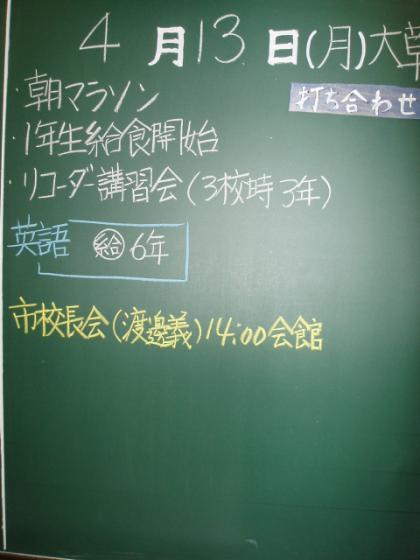 4月13日(月)大
打ち合わせ
・朝マラソン
・1年生給食開始
・リコーダー講習会(3校時3年)
英語 ㊗6年
市校長会(渡邊義)14:00会館